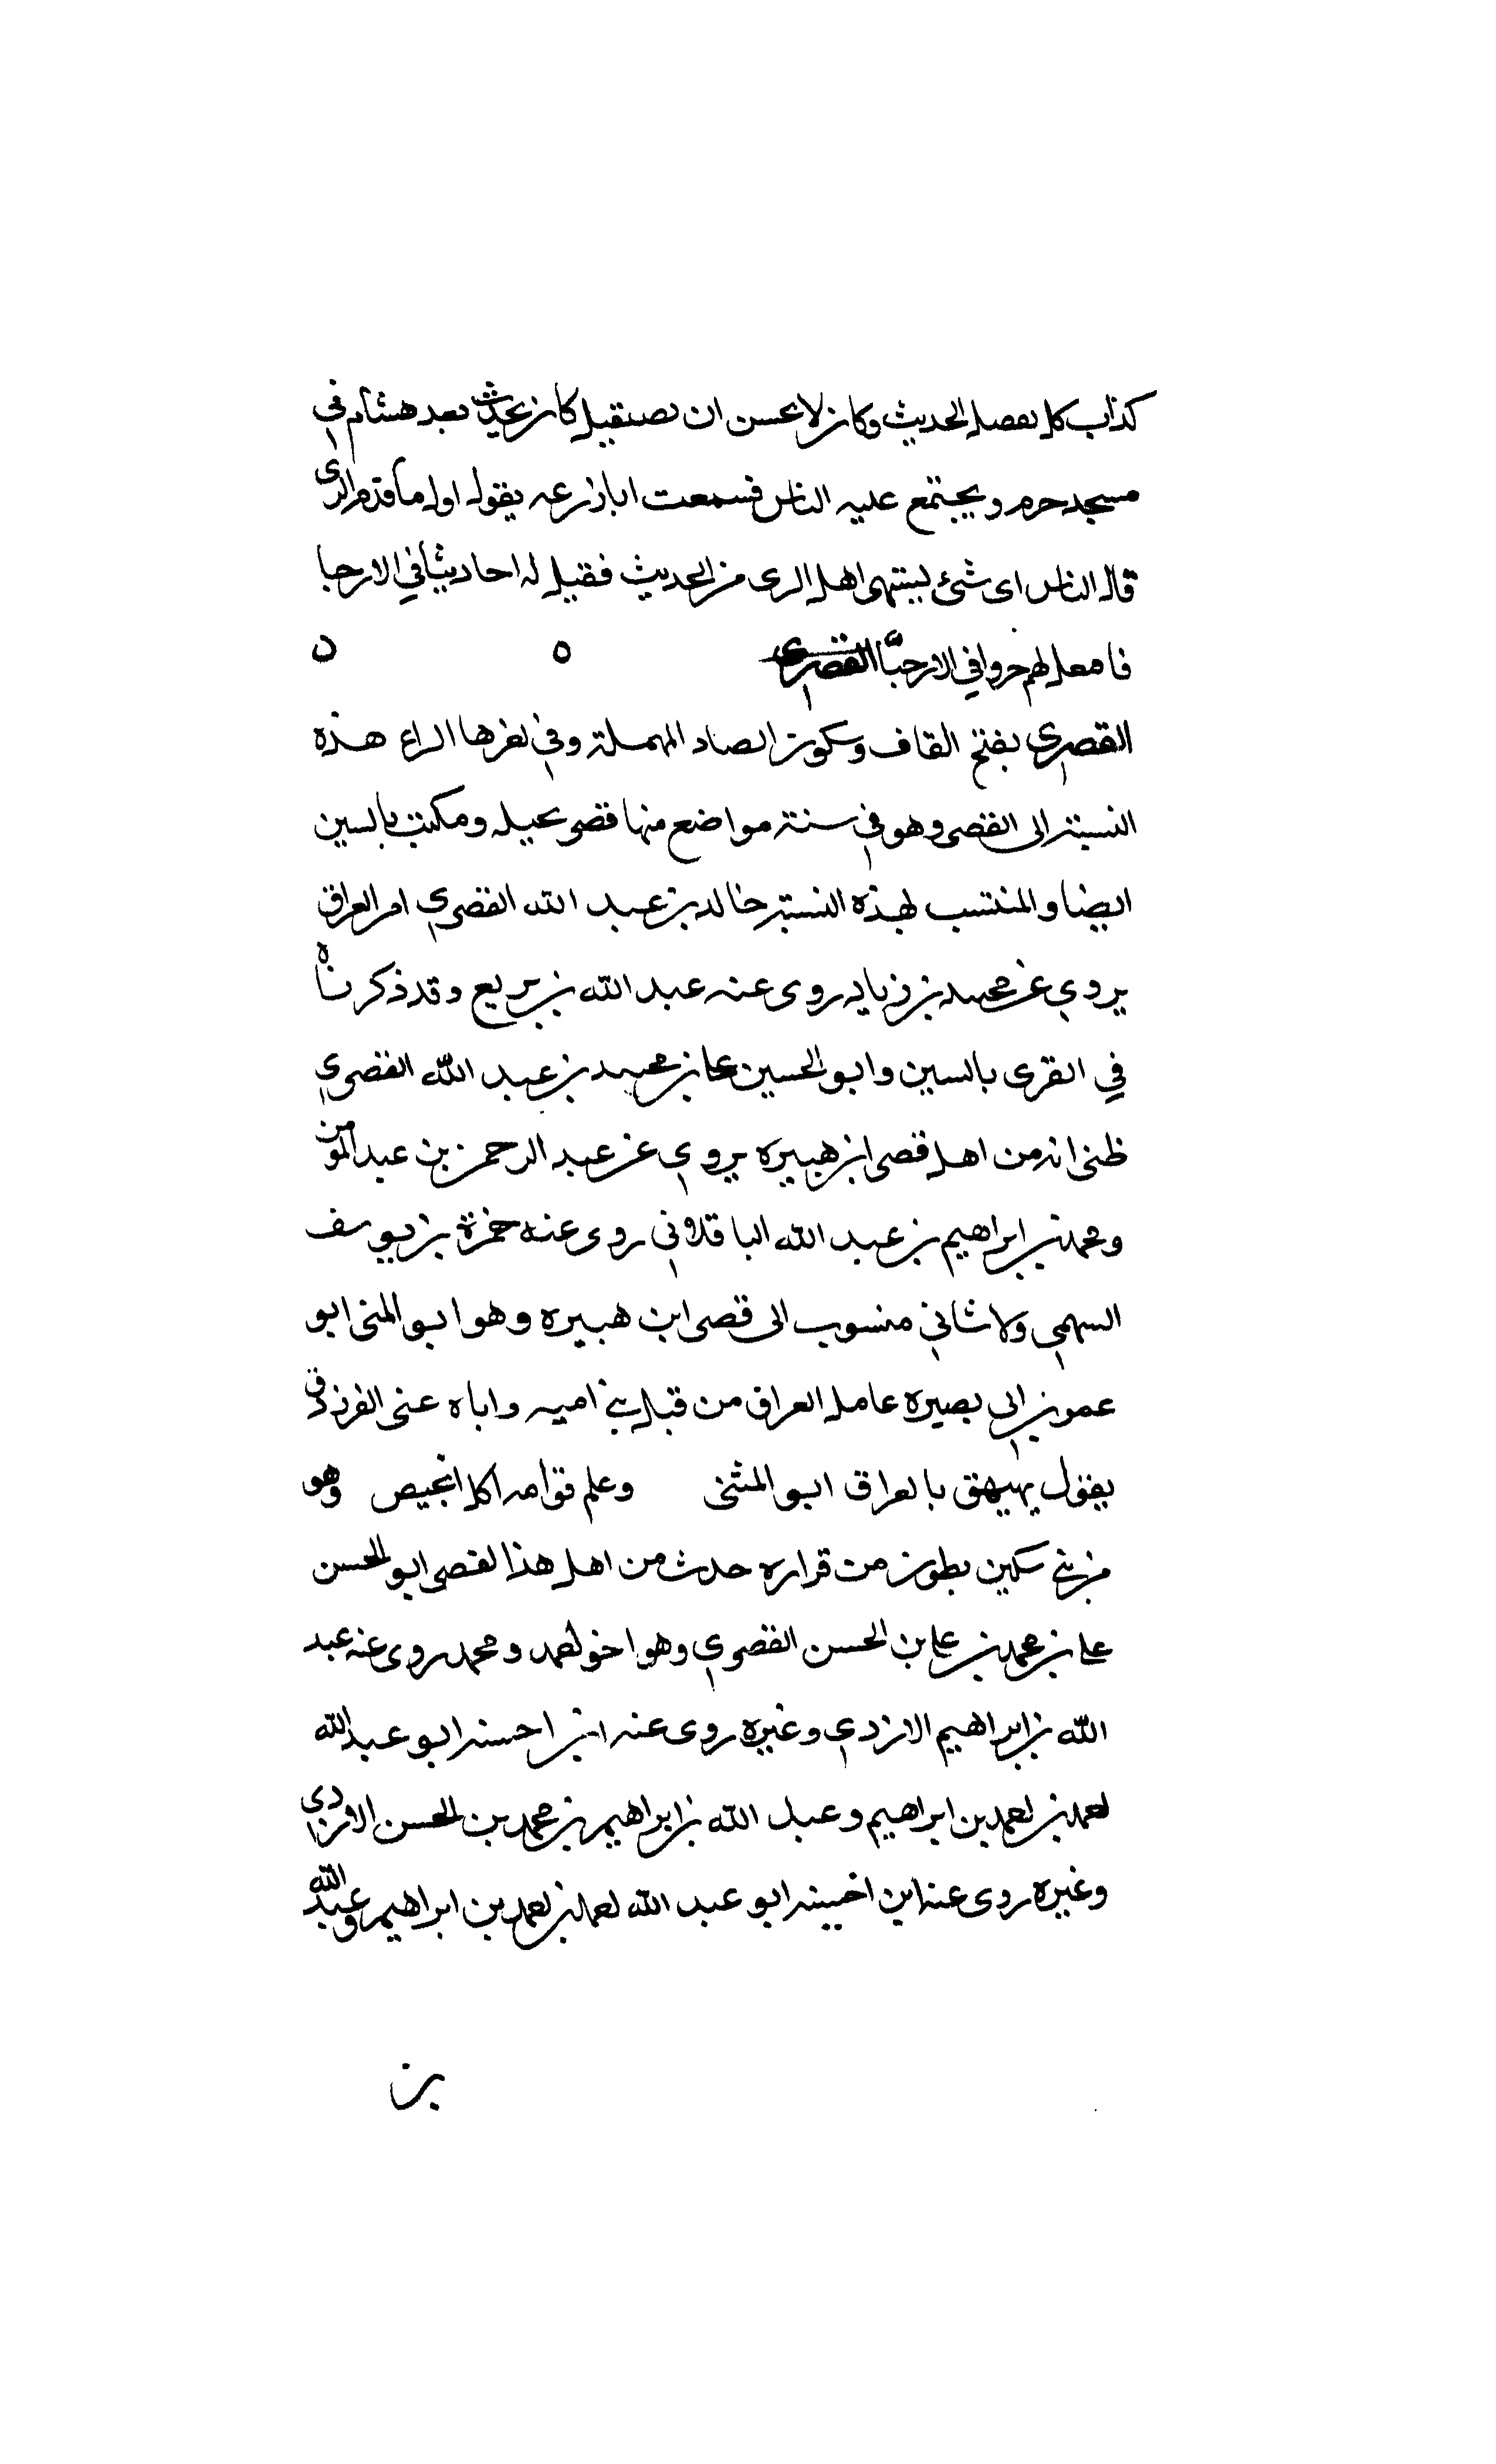 كذاب كل يفصل الحديث وكان لا يحسن ان يصقيل كان يحدث بعد هشام في
مسجد حرم ويجتمع عليه الناس فسمعت ابا زرعه يقول اول ما قدم الرى
قال الناس اى شئ ليشتهى اهل الرى من الحديث فقيل له احاديثا في الارجا
فامعل لهم جروا في الارجا القصرى
القصرى بفتح القاف وسكون الصاد المهملة وفي لغرها الراء هذه
النسبة الى القصى وهو في ستة مواضع منها قصى بحيله ومكتب بالسين
ايضا والمنتسب لهذه النسبة خالد بن عبد الله القصرى امر العراق
يروي عن محمد بن زياد روى عنه عبد الله بن بريع وقد ذكرناه
في القرى بالسين وابو الحسين على بن محمد بن عبد الله القصرى
ظنى انه من اهل قصى ابن هبيرة يروى عن عبد الرحمن بن عبد المومن
ومحمد بن ابراهيم بن عبد الله الباقلانى روى عنه حمزة بن يوسف
السهمى ولا ثاني منسوب الى قصى ابن هبيره وهو ابو المنى ابو
عمر بن ابى بصيره عامل العراق من قبل بنى اميه واباه عنى الفرزدق
بقول يهيهق بالعراق ابو المثنى وعلم قوامه اكل انجيص وهو
من بنى سكين بطون من قراره حدث من اهل هذا لقصى ابو الحسن
على بن محمد بن على بن الحسن القصرى وهو اخو لعمد ومحمد روى عنه عبد
الله بن ابراهيم الازدى وغيره روى عنه ابن احسنه ابو عبد الله
لعمد بن لعمد بن ابراهيم وعبد الله بن ابراهيم بن محمد بن الحسن الازدى
وغيره روى عنه ابن اخيسه ابو عبد الله لعمد بن لعمد بن ابراهيم وعبد الله
بن